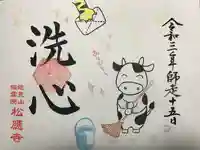 令和三年師走十五日
洗心
松應寺